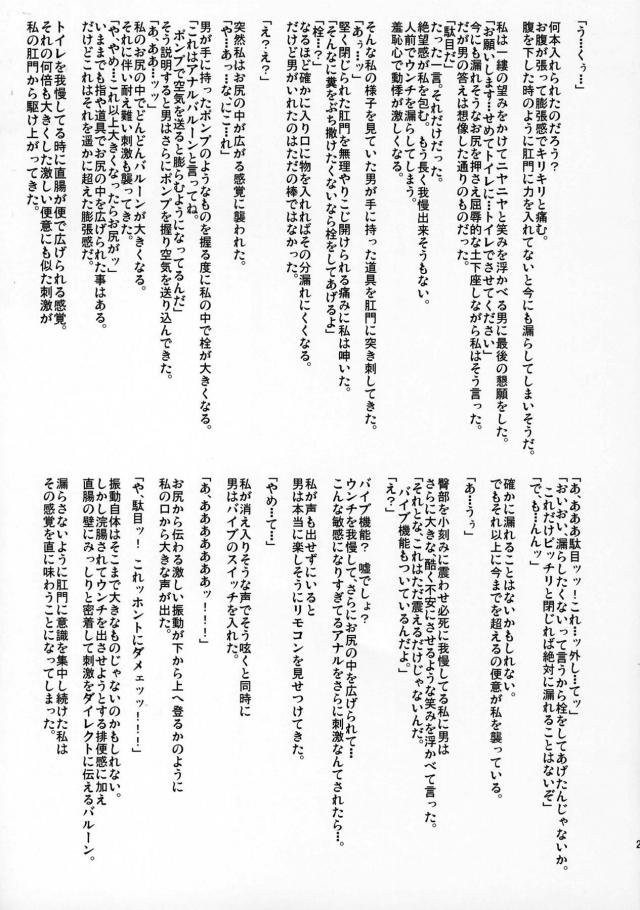 「う…くぅ…」
何本入れられたのだろう?
お腹が張って膨張感でキリキリと痛む。
腹を下した時のように肛門に力を入れてないと今にも漏らしてしまいそうだ。
私は一縷の望みをかけてニヤニヤと笑みを浮かべる男に最後の懇願をした。
「お願いします…せめてトイレに…トイレでさせてください」
今にも漏れそうなお尻を押さえ屈辱的な土下座しながら私はそう言った。
だが男の答えは想像した通りのものだった。
「駄目だ」
たった一言。それだけだった。
絶望感が私を包む。もう長く我慢出来そうもない。
人前でウンチを漏らしてしまう。
羞恥心で動悸が激しくなる。
そんな私の様子を見ていた男が手に持った道具を肛門に突き刺してきた。
「あぅ…ッ」
堅く閉じられた肛門を無理やりこじ開けられる痛みに私は呻いた。
「そんなに糞をぶち撒けたくないなら栓をしてあげるよ」
「栓…?」
なるほど確かに入り口に物を入れればその分漏れにくくなる。
だけど男がいれたのはただの棒ではなかった。
「え?え?」
突然私はお尻の中が広がる感覚に襲われた。
「や…あっ…なにこ…れ」
男が手に持ったポンプのようなものを握る度に私の中で栓が大きくなる。
「これはアナルバルーンと言ってね。
ポンプで空気を送ると膨らむようになってるんだ」
そう説明すると男はさらにポンプを握り空気を送り込んできた。
「ああああ…ッ」
私のお尻の中でどんどんバルーンが大きくなる。
それに伴い耐え難い刺激も襲ってきた。
「や、やめ…これ以上大きくなったらお尻がッ」
いままでも指や道具でお尻の中を広げられた事はある。
だけどこれはそれらを遥かに超えた膨張感だ。
トイレを我慢してる時に直腸が便で広げられる感覚。
その何倍も大きくした激しい便意にも似た刺激が
私の肛門から駆け上がってきた。
「あ、ああああ駄目ッッ!これ…ッ外し…てッ」
「おいおい、漏らしたくないって言うから栓をしてあげたんじゃないか。
これだけピッチリと閉じれば絶対に漏れることはないぞ」
「で、も…んんッ」
確かに漏れることはないかもしれない。
でもそれ以上に今までを超えるの便意が私を襲っている。
「あ…うぅ」
臀部を小刻みに震わせ必死に我慢してる私に男は
さらに大きな、酷く不安にさせるような笑みを浮かべて言った。
「それとな、これはただ震えるだけじゃないんだ。
バイブ機能もついているんだよ。」
「え?」
バイブ機能?嘘でしょ?
ウンチを我慢して、さらにお尻の中を広げられて…
こんな敏感になりすぎてるアナルをさらに刺激なんてされたら…。
私が声も出せずにいると
男は本当に楽しそうにリモコンを見せつけてきた。
「やめ…て…」
私が消え入りそうな声でそう呟くと同時に
男はバイブのスイッチを入れた。
「あ、ああああああぁッ!!!」
お尻から伝わる激しい振動が下から上へ登るかのように
私の口から大きな声が出た。
「や、駄目ッ! これッホントにダメェッッ!!!」
振動自体はそこまで大きなものじゃないのかもしれない。
しかし浣腸されてウンチを出させようとする排便感に加え
直腸の壁にみっしりと密着して刺激をダイレクトに伝えるバルーン。
漏らさないように肛門に意識を集中し続けた私は
その感覚を直に味わうことになってしまった。
2